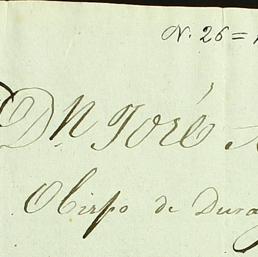 N. 26 =
Dn José
Obispo de Dura